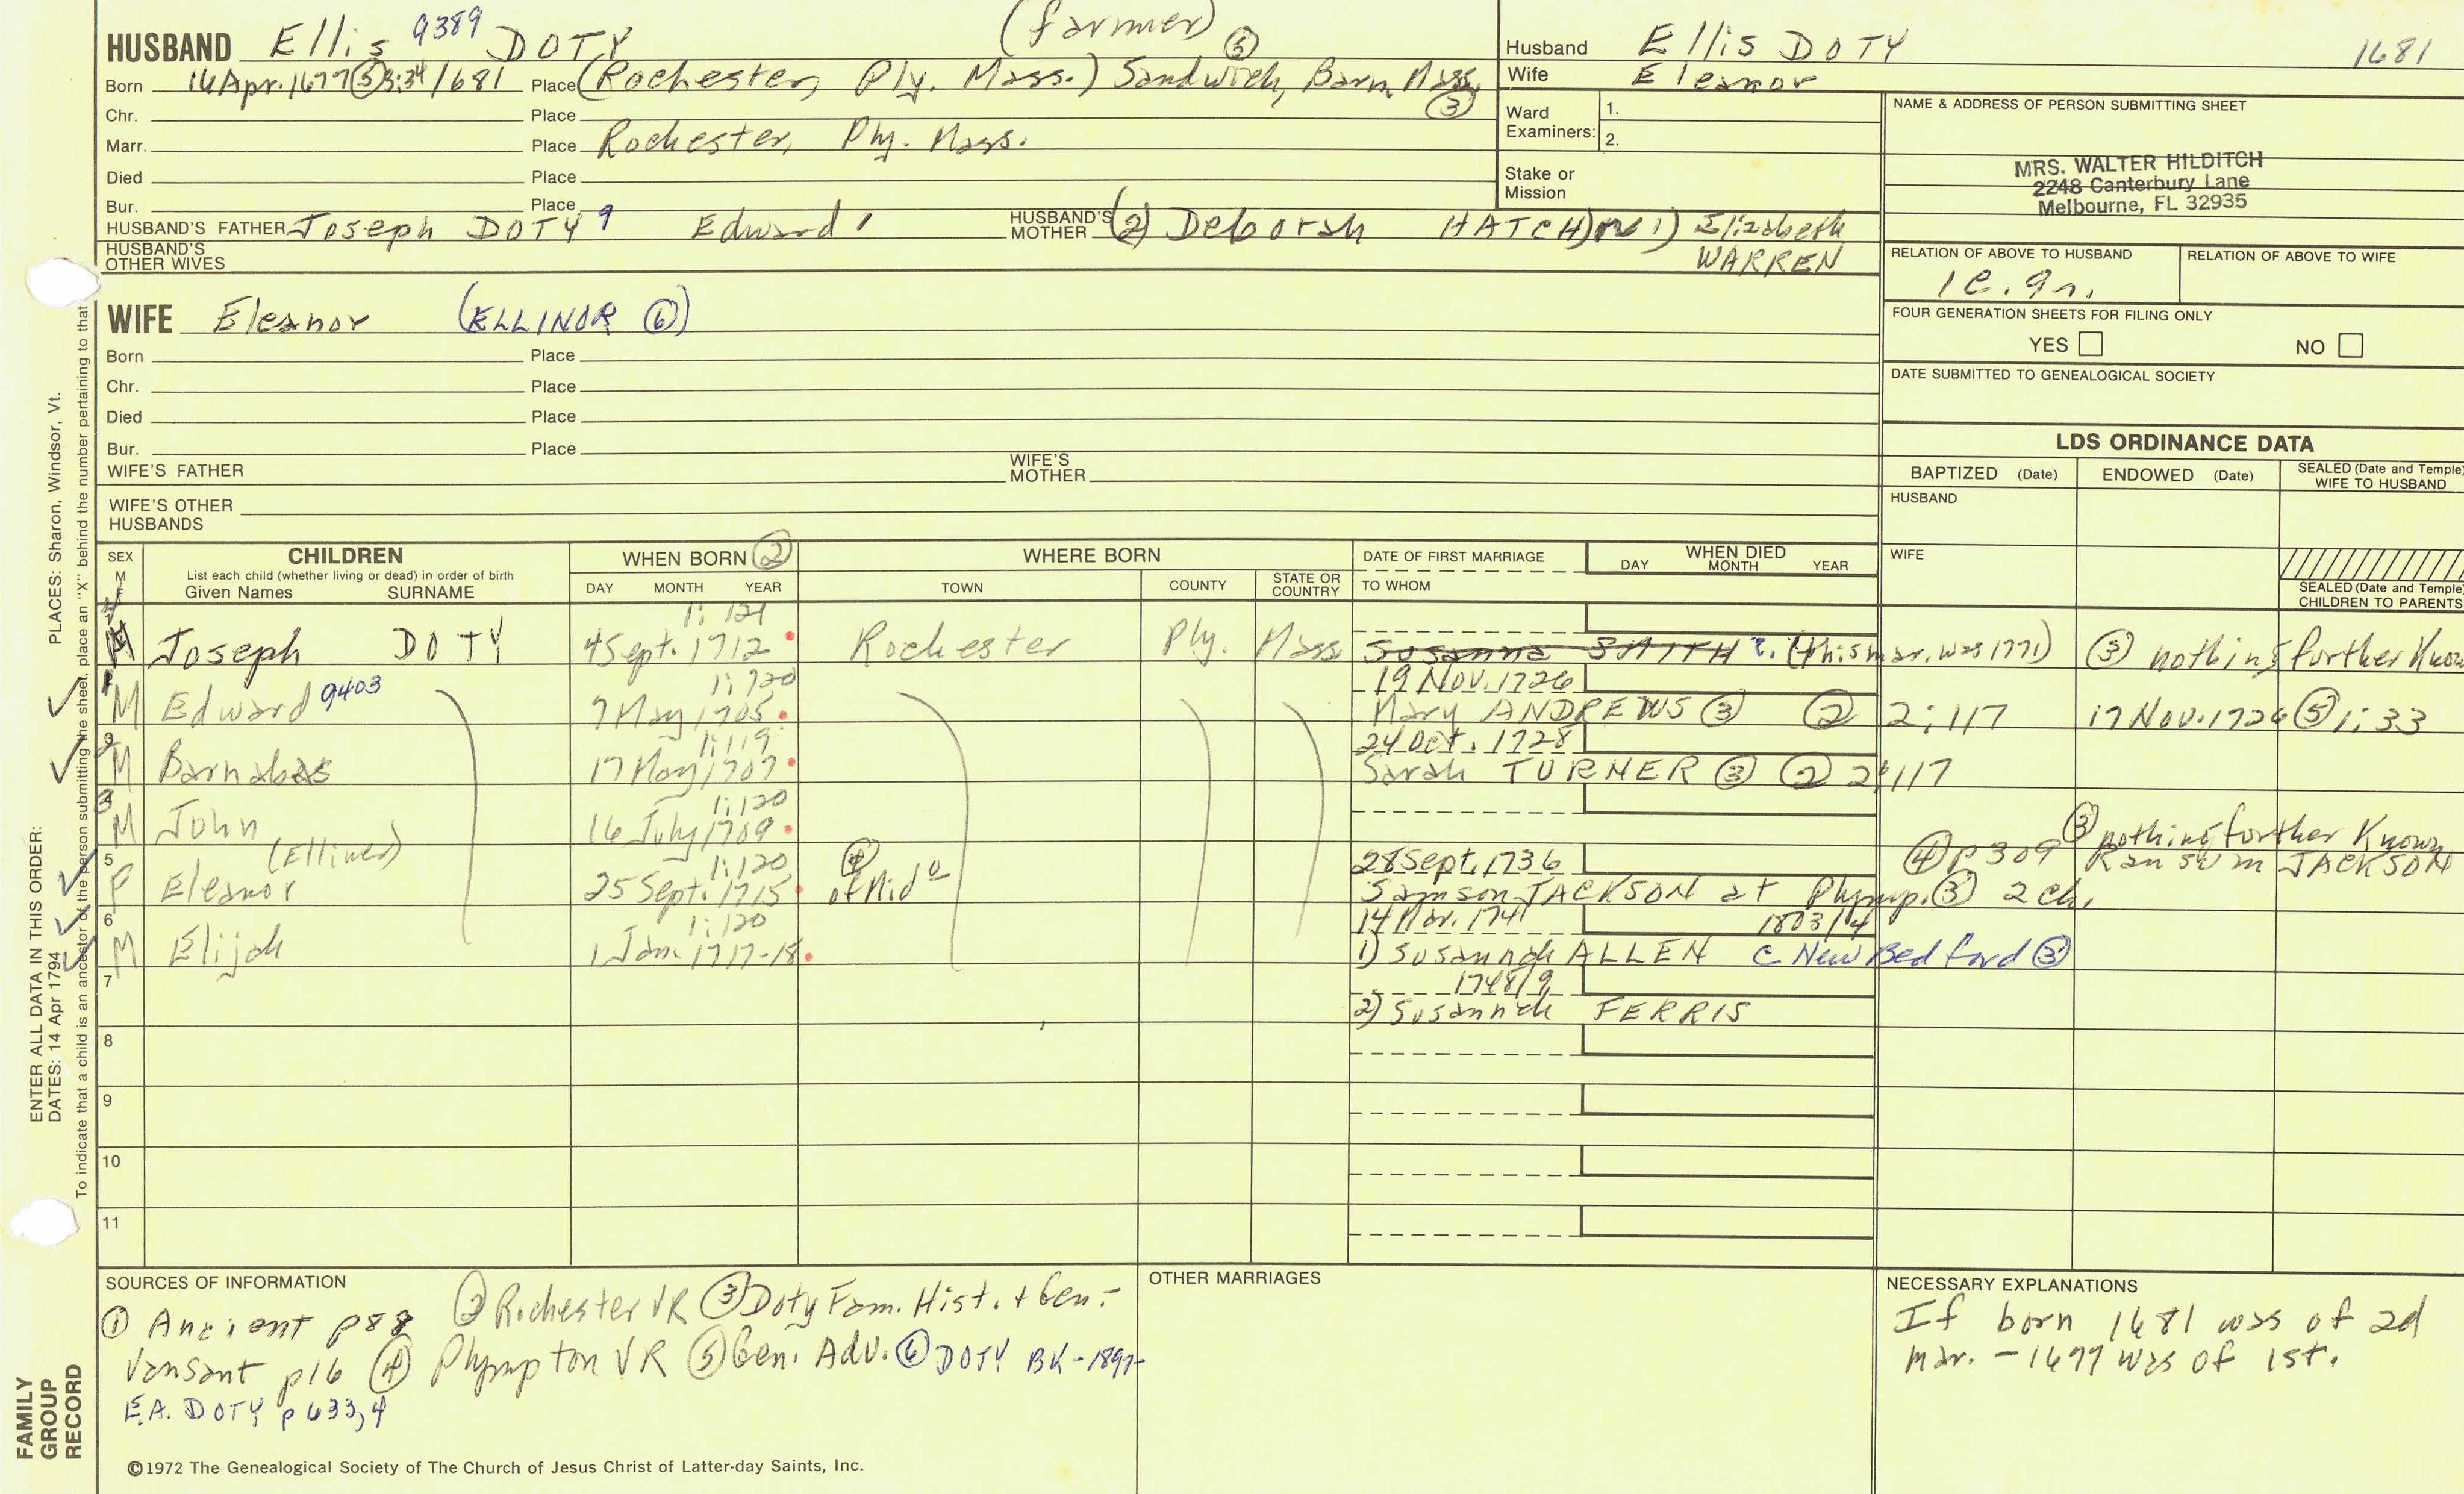 HUSBAND Ellis 9389 DOTY (farmer) ⑤
Born 16 Apr. 1677 ⑤ 3:34/1681 Place (Rochester, Ply. Mass.) Sandwich, Barn, Mass. ③
Chr. Place
Marr. Place Rochester, Ply. Mass.
Died Place
Bur. Place
HUSBAND'S FATHER Joseph DOTY 9 Edward 1 HUSBAND'S MOTHER (2) Deborah HATCH) m 1) Elizabeth
HUSBAND'S OTHER WIVES WARREN
WIFE Eleanor (ELLINOR ⑥)
Born Place
Chr. Place
Died Place
Bur. Place
WIFE'S FATHER WIFE'S MOTHER
WIFE'S OTHER HUSBANDS
Husband Ellis DOTY 1681
Wife Eleanor
Ward Examiners: 1.
2.
Stake or Mission
NAME & ADDRESS OF PERSON SUBMITTING SHEET
MRS. WALTER HILDITCH
2248 Canterbury Lane
Melbourne, FL 32935
RELATION OF ABOVE TO HUSBAND RELATION OF ABOVE TO WIFE
FOUR GENERATION SHEETS FOR FILING ONLY
YES NO
DATE SUBMITTED TO GENEALOGICAL SOCIETY
LDS ORDINANCE DATA
BAPTIZED (Date) ENDOWED (Date) SEALED (Date and Temple) WIFE TO HUSBAND
HUSBAND
WIFE
SEALED (Date and Temple) CHILDREN TO PARENTS
SEX M F
CHILDREN
List each child (whether living or dead) in order of birth
Given Names SURNAME
WHEN BORN ②
DAY MONTH YEAR
WHERE BORN
TOWN COUNTY STATE OR COUNTRY
DATE OF FIRST MARRIAGE
TO WHOM
WHEN DIED
DAY MONTH YEAR
1:121
M Joseph DOTY 4 Sept. 1712 Rochester Ply. Mass Susanna SMITH ?. (this mar. was 1771) ③ nothing further Know
1:120 19 Nov. 1726
M Edward 9403 7 May 1705 Mary ANDREWS ③ ② 2:117 17 Nov. 1726 ⑤ 1:33
1:119 24 Oct. 1728
M Barnabas 17 May 1707 Sarah TURNER ③ ② 2:117
1:120
M John 16 July 1709 ③ nothing further Known
5 (Elliner) 1:120 ④ 28 Sept. 1736 ④ p 309 Ransum JACKSON
F Eleanor 25 Sept. 1715 of Mid° Samson JACKSON at Plymp. ③ 2 ch.
6 1:120 14 Mar. 1741 1803/4
M Elijah 1 Jan. 1717-18 1) Susannah ALLEN C New Bedford ③
7 1748/9
2) Susannah FERRIS
8
9
10
11
SOURCES OF INFORMATION
① Ancient p88 ② Rochester VR ③ Doty Fam. Hist. + Gen.-
Vansant p16 ④ Plympton VR ⑤ Gen. Adv. ⑥ DOTY BK-1897-
E.A. DOTY p 633,4
©1972 The Genealogical Society of The Church of Jesus Christ of Latter-day Saints, Inc.
OTHER MARRIAGES
NECESSARY EXPLANATIONS
If born 1681 was of 2d
mar. - 1677 was of 1st.
ENTER ALL DATA IN THIS ORDER:
DATES: 14 Apr 1794 PLACES: Sharon, Windsor, Vt.
To indicate that a child is an ancestor of the person submitting the sheet, place an "X" behind the number pertaining to that
FAMILY GROUP RECORD